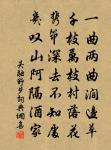 一曲兩曲澗邊草
千枝萬枝村落花
攜筇深去不知處
幾叹山阿隔酒家
吴融野步